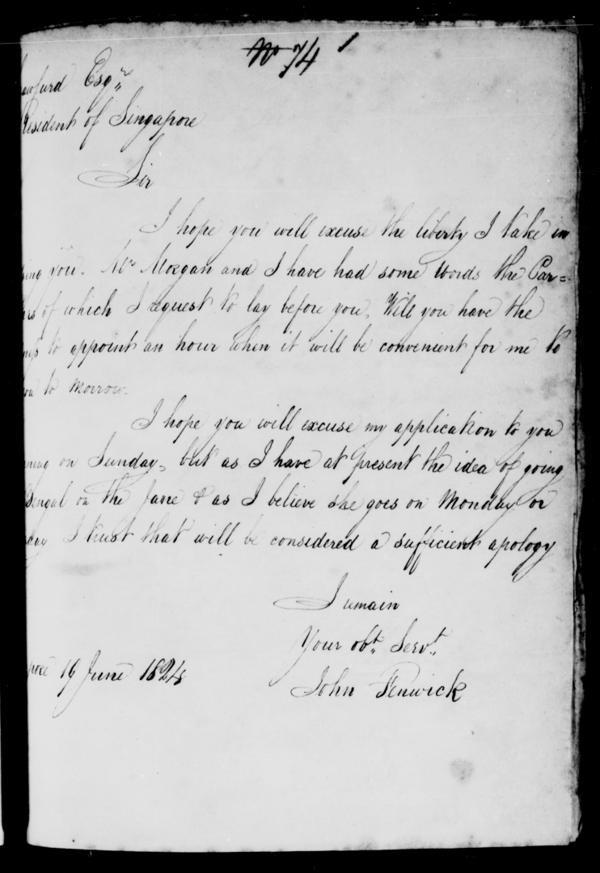 No 74
awfurd Esqr
Resident of Singapore
Sir
I hope you will excuse the liberty I take in
ing you. Mr Morgan and I have had some words the Par=
rs of which I request to lay before you, Will you have the
ness to appoint an hour when it will be convenient for me to
you to morrow.
I hope you will excuse my application to you
ming on Sunday, but as I have at present the idea of going
Bengal on the Jane & as I believe she goes on Monday or
day I trust that will be considered a sufficient apology
I remain
Your obt. Servt.
John Fenwick
pore 19 June 1824